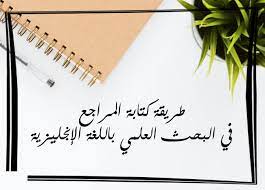 طريقة كتابة المراجع
في البحث العلمي باللغة الإنجليزية